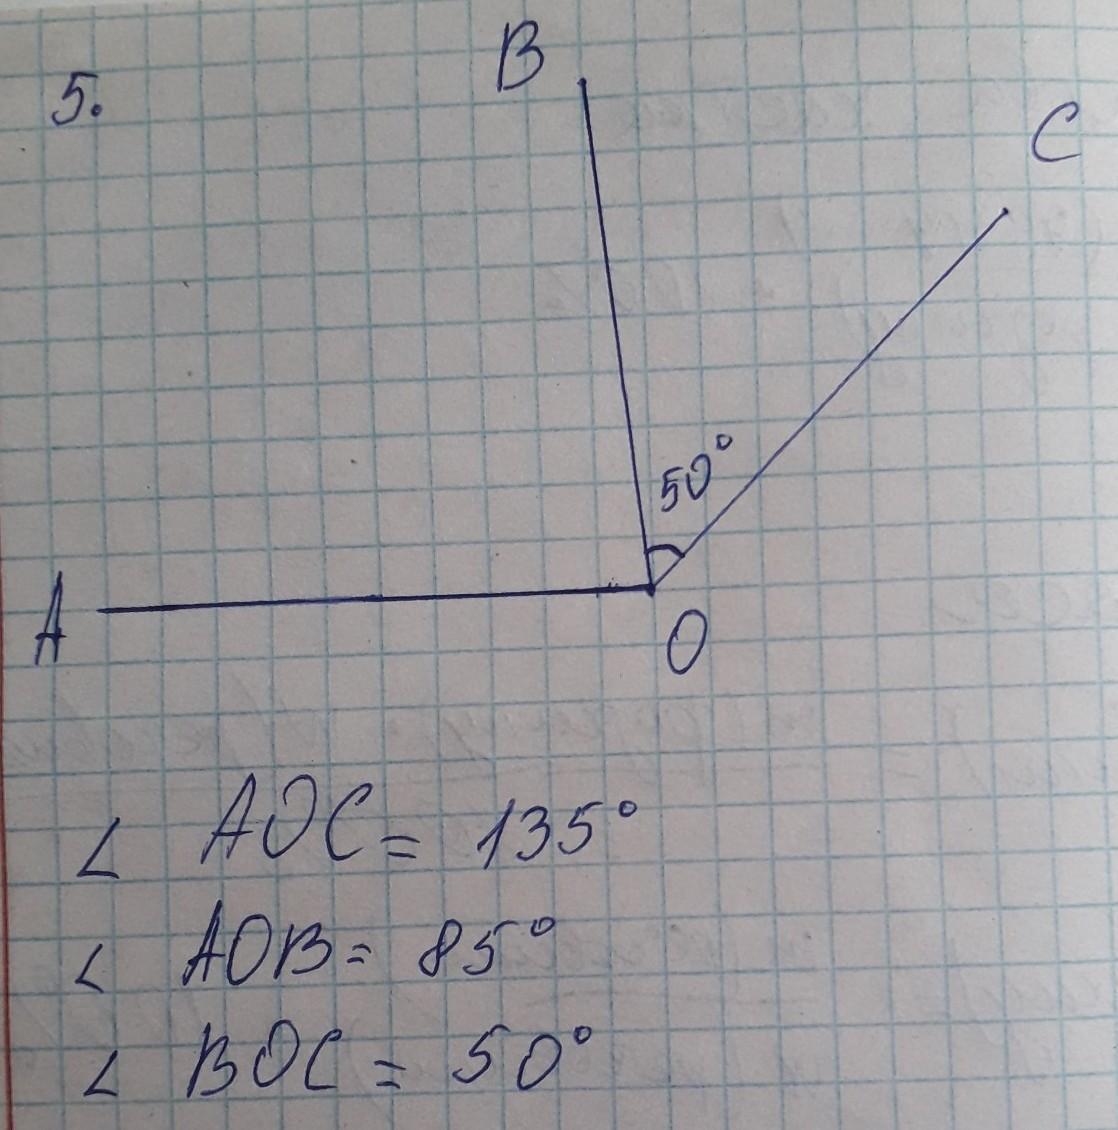 5.
B
C
50°
A
O
∠ AOC = 135°
∠ AOB = 85°
∠ BOC = 50°